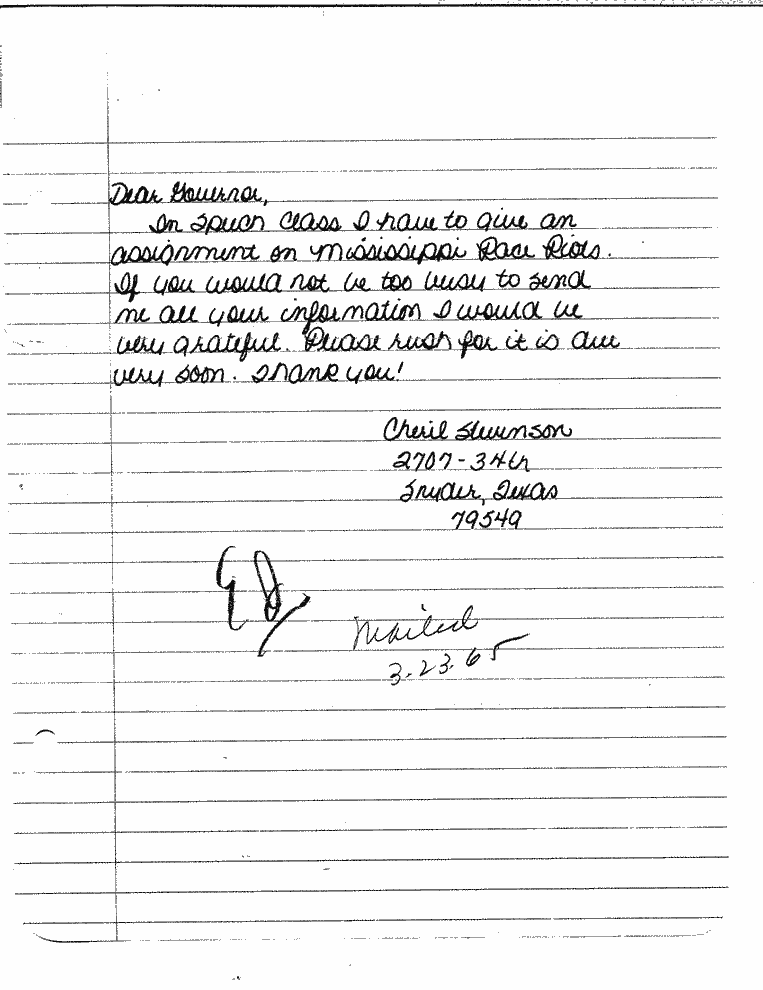 Dear Governor,
In Speech class I have to give an
assignment on Mississippi Race Riots.
If you would not be too busy to send
me all your information I would be
very grateful. Please rush for it is due
very soon. Thank you!
Cheril Stevenson
2707-34th
Snyder, Texas
79549
Mailed
3-23-65